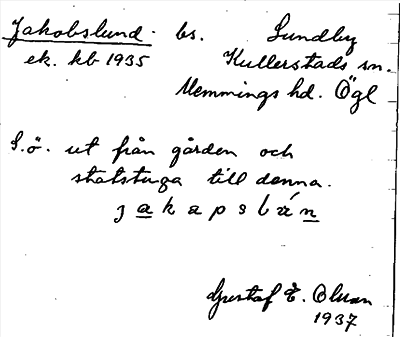 Jakobslund. bs. Lundby
ek. kb 1935 Kullerstads sn.
Memmings hd. Ögl
S.ö. ut från gården och
statstuga till denna.
Gustaf E. Olsson
1937